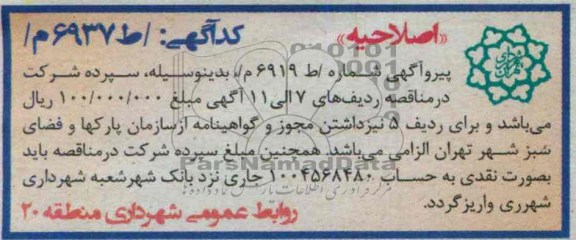 «اصلاحیه»
کدآگهی: /ط۶۹۳۷م/
پیروآگهی شماره /ط ۶۹۱۹م/، بدینوسیله، سپرده شرکت
درمناقصه ردیف‌های ۷الی۱۱ آگهی مبلغ ۱۰۰/۰۰۰/۰۰۰ ریال
می‌باشد و برای ردیف ۵ نیزداشتن مجوز و گواهینامه ازسازمان پارکها و فضای
سبز شهر تهران الزامی می‌باشد. همچنین مبلغ سپرده شرکت درمناقصه باید
بصورت نقدی به حساب ۱۰۰۴۵۶۸۴۸۰ جاری نزد بانک شهرشعبه شهرداری
شهرری واریزگردد.
روابط عمومی شهرداری منطقه ۲۰
ParsNamadData